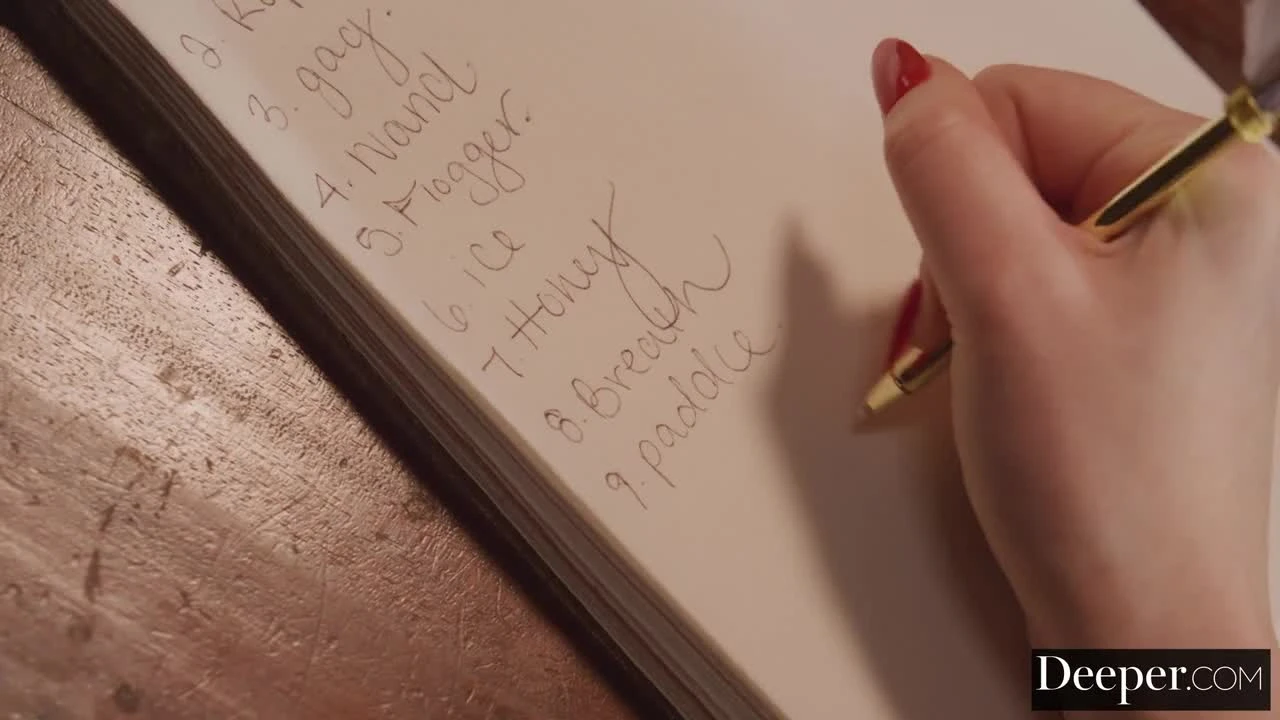 2.
3. gag.
4. Wand.
5. Flogger.
6. ice
7. Honey
8. Breath
9. paddle
Deeper.COM